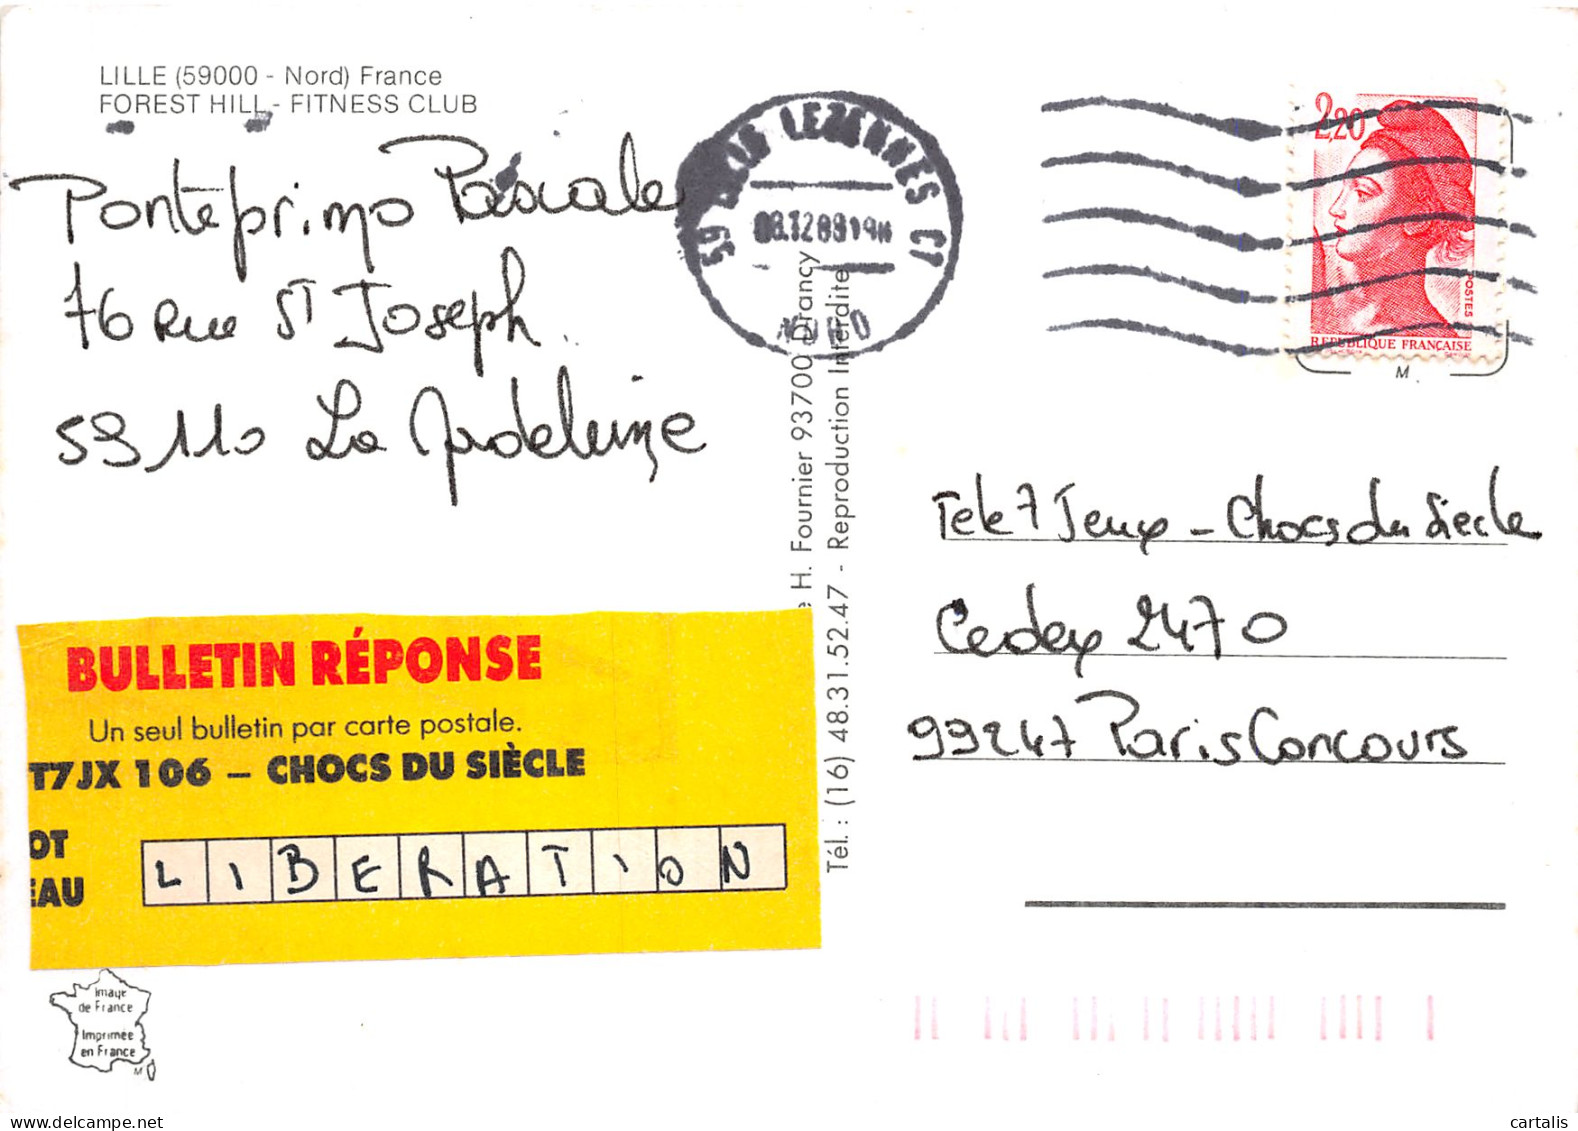 LILLE (59000 - Nord) France
FOREST HILL - FITNESS CLUB
Ponteprimo Pascale
76 Rue ST Joseph.
59110 La Madeleine
59 LEZENNES C1
NORD
2,20
POSTES
REPUBLIQUE FRANÇAISE
M
H. Fournier 93700 Drancy
Tél. : (16) 48.31.52.47 - Reproduction Interdite
Tele 7 Jeux - Chocs du Siecle
Cedex 2470
99247 Paris Concours
BULLETIN RÉPONSE
Un seul bulletin par carte postale.
T7JX 106 – CHOCS DU SIÈCLE
OT
EAU
LIBERATION
Image
de France
Imprimée
en France
M
cartalis